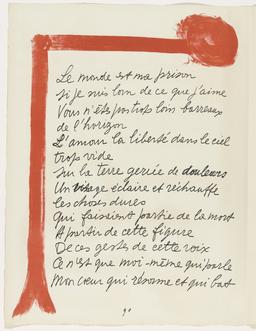 Le monde est ma prison
Si je suis loin de ce que j'aime
Vous n'êtes pas trop loin barreaux
de l'horizon
L'amour la liberté dans le ciel
trop vide
Sur la terre gercée de douleurs
Un visage éclaire et réchauffe
les choses dures
Qui faisaient partie de la mort
A partir de cette figure
De ces gestes de cette voix
Ce n'est que moi-même qui parle
Mon cœur qui résonne et qui bat